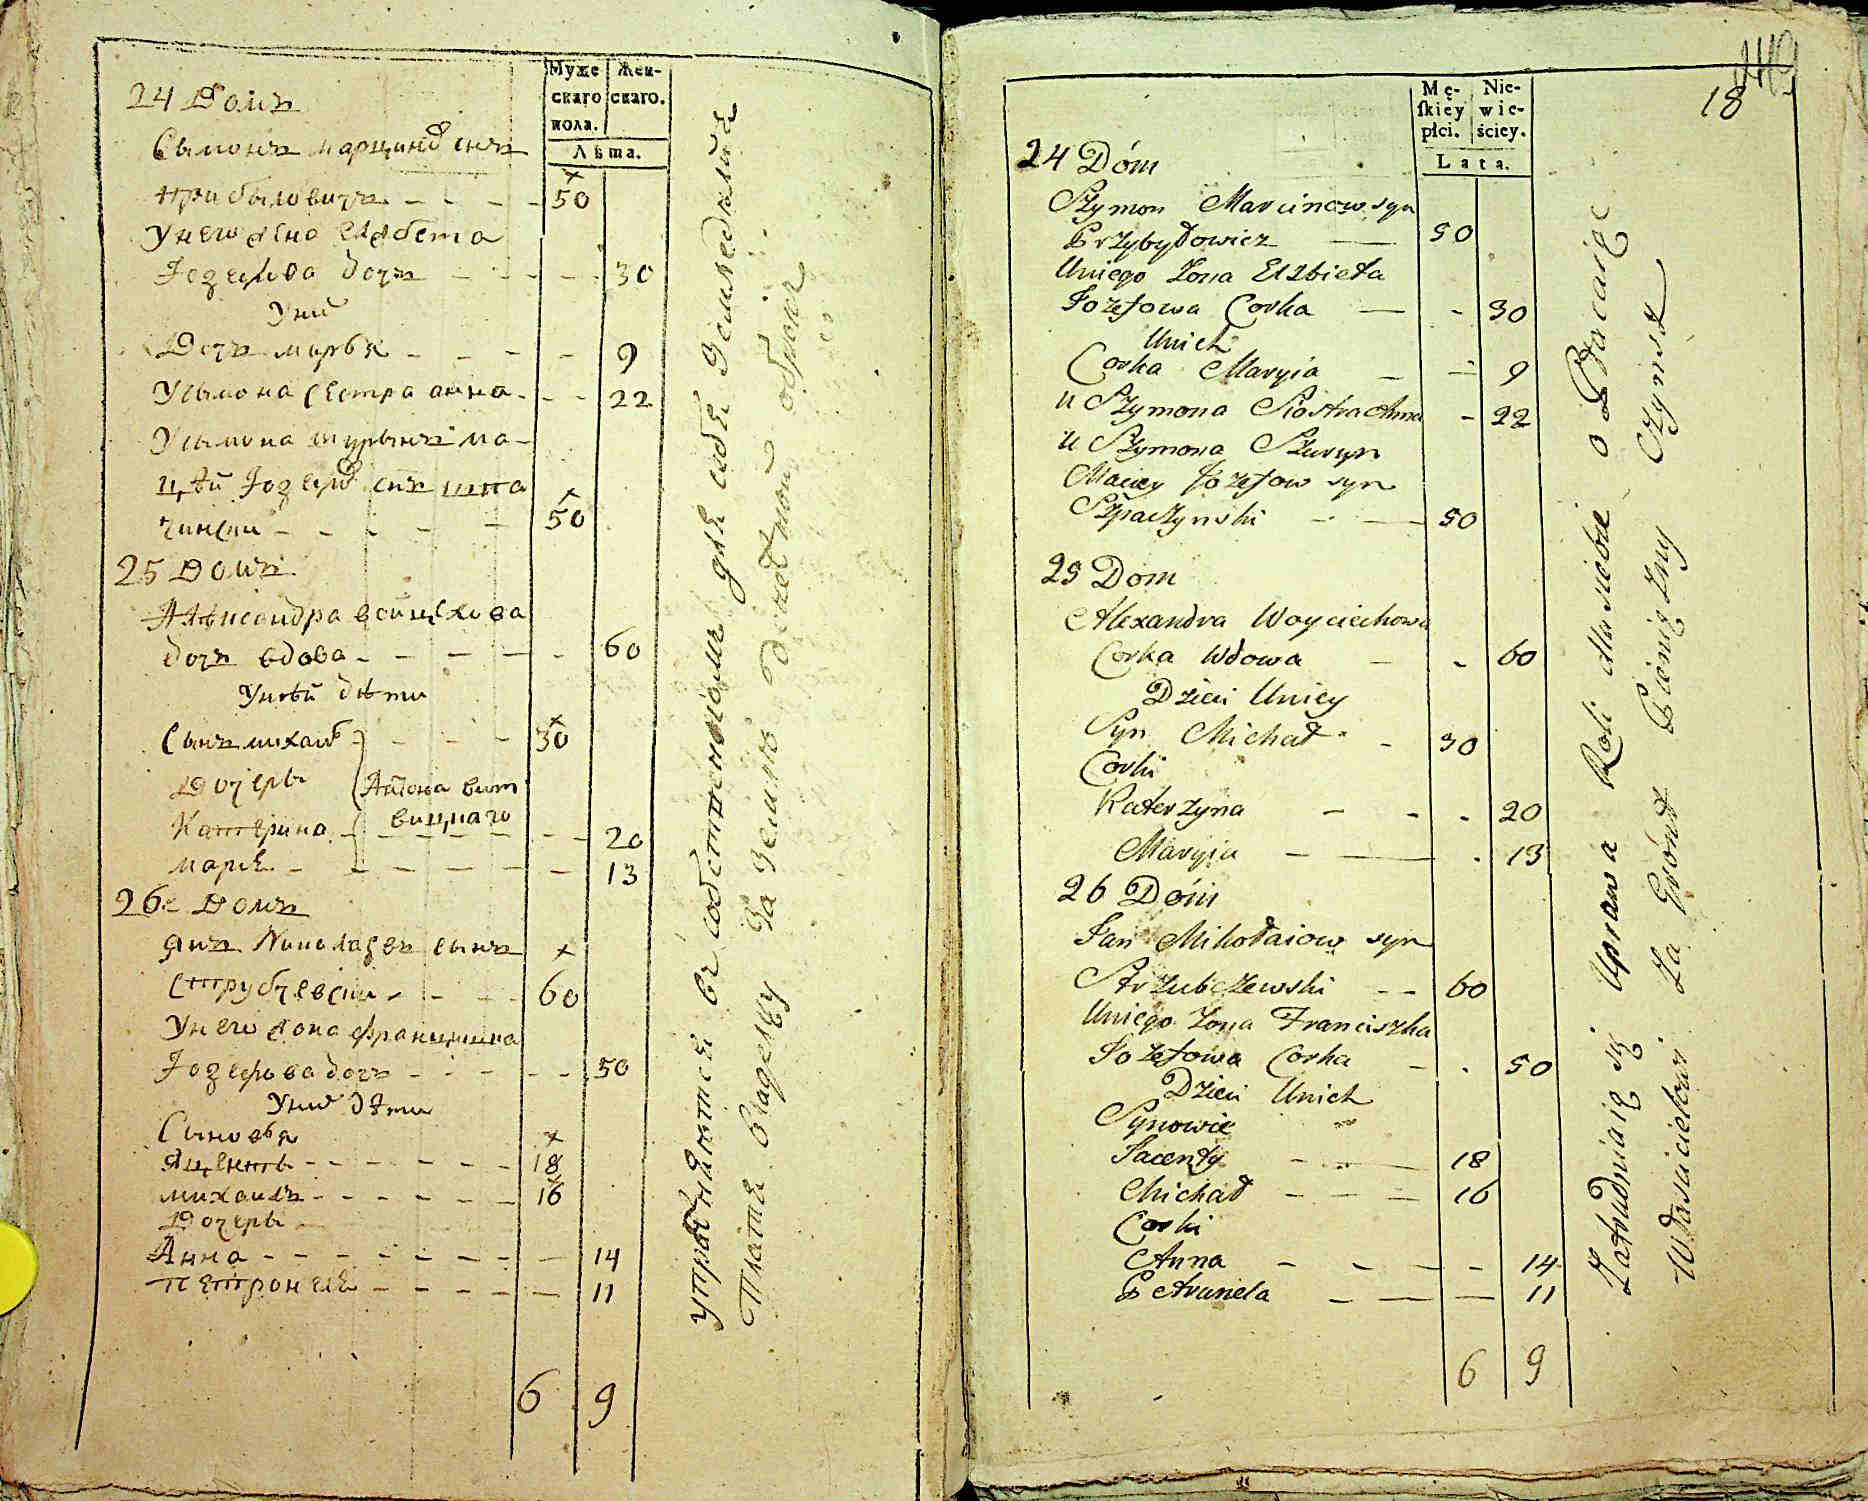 Муже
скаго
пола.
Жен-
скаго.
Лѣта.
24 Домъ
Сымонъ марцинов снъ
прибыловичъ - - - - 50
Унего жена елжбета
Іозефова дочъ - - - - 30
Уних
Дочъ марья - - - - 9
Усымона сестра анна - - - 22
Усымона шурынъ ма-
цѣй Іозефов снъ шпа
чинский - - - - - 50
25 Домъ
Алѣксандра войцехова
дочъ вдова - - - - - 60
Унѣй дѣти
Сынъ михаил - - - 30
Дочеръ
Катерина - - - - - - 20
марія - - - - - - 13
26 Домъ
янъ Николаевъ сынъ
Струбчевский - - - - 60
Унего жона францишка
Іозефова дочъ - - - - - 50
Уних дѣти
Сыновья
яцентъ - - - - - - 18
михаилъ - - - - - - 16
Дочеръ
Анна - - - - - - - - 14
петронеля - - - - - - 11
6 9
упражняются въ собственномъ для себя земледелия
Платя владельцу за землю денежной оброк
18
Mę-
skiey
płci.
Nie-
wie-
ściey.
Lata.
24 Dóm
Szymon Marcinow syn
Przybyłowicz — 50
Uniego Zona Elzbieta
Jozefowa Corka — - 30
Unich
Corka Maryia — - 9
u Szymona Siostra Anna - 22
u Szymona Szuryn
Maciey Jozefow syn
Szpaczynski - — 50
25 Dom
Alexandra Woyciechowa
Corka Wdowa — - 60
Dzieci Uniey
Syn Michał - - 30
Corki
Katerzyna — - - 20
Maryia - — . 13
26 Dóm
Jan Mikołaiow syn
Strzubczewski - - 60
Uniego Zona Franciszka
Jozefowa Corka - . 50
Dzieci Unich
Synowie
Jacenty - - — 18
Michał - - - — 16
Corki
Anna - - - - - 14
Petrunela - — — 11
6 9
Zatrudniaię się Uprawa Roli dla siebie o Płacaiąc
Właścicielowi Za Grónt Pieniężny Czynsz